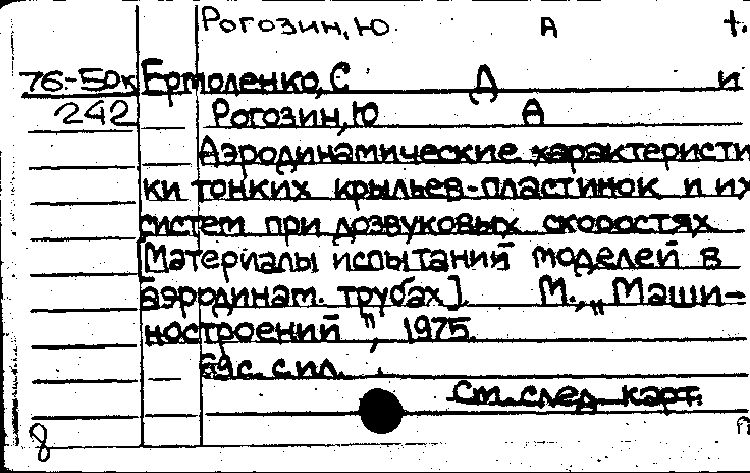 Рогозин, Ю А t.
76-50к Ермоленко, С Д и
242 Рогозин, Ю А
Аэродинамические характеристи
ки тонких крыльев-пластинок и их
систем при дозвуковых скоростях
[Материалы испытаний моделей в
аэродинам. трубах]. М., „Маши-
ностроений", 1975.
с. с ил.
См. след. карт.
8